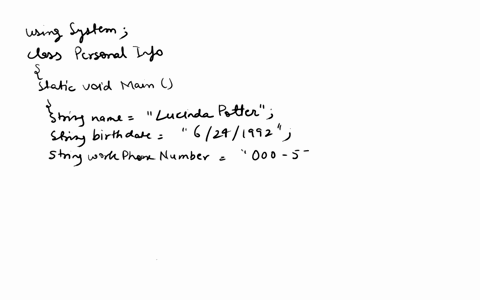 using System;
class Personal Info
{
Static void Main ()
{
String name = "Lucinda Potter";
String birthdate = "6/24/1992";
String workPhone Number = "000-5